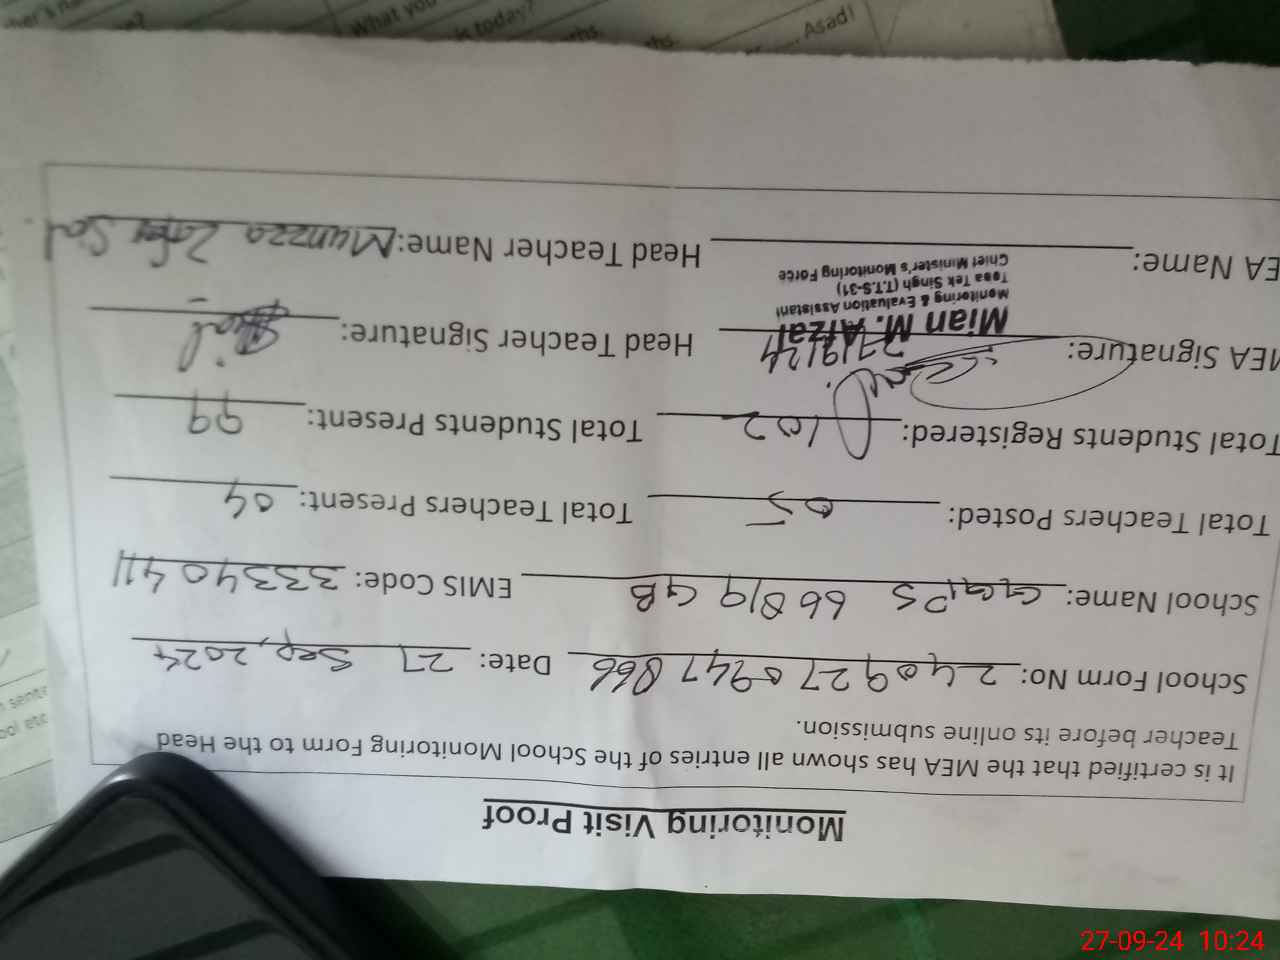 Monitoring Visit Proof
It is certified that the MEA has shown all entries of the School Monitoring Form to the Head
Teacher before its online submission.
School Form No: 240927 0947 866 Date: 27 Sep, 2024
School Name: GGPS 668/9 GB EMIS Code: 33340411
Total Teachers Posted: 05 Total Teachers Present: 04
Total Students Registered: 102 Total Students Present: 99
MEA Signature: 27/9/24 Head Teacher Signature:
Mian M. Afzal
Monitoring & Evaluation Assistant
Toba Tek Singh (T.T.S-31)
Chief Minister's Monitoring Force
EA Name: Head Teacher Name: Munzza
What you
is today?
ths.
Asad!
27-09-24 10:24